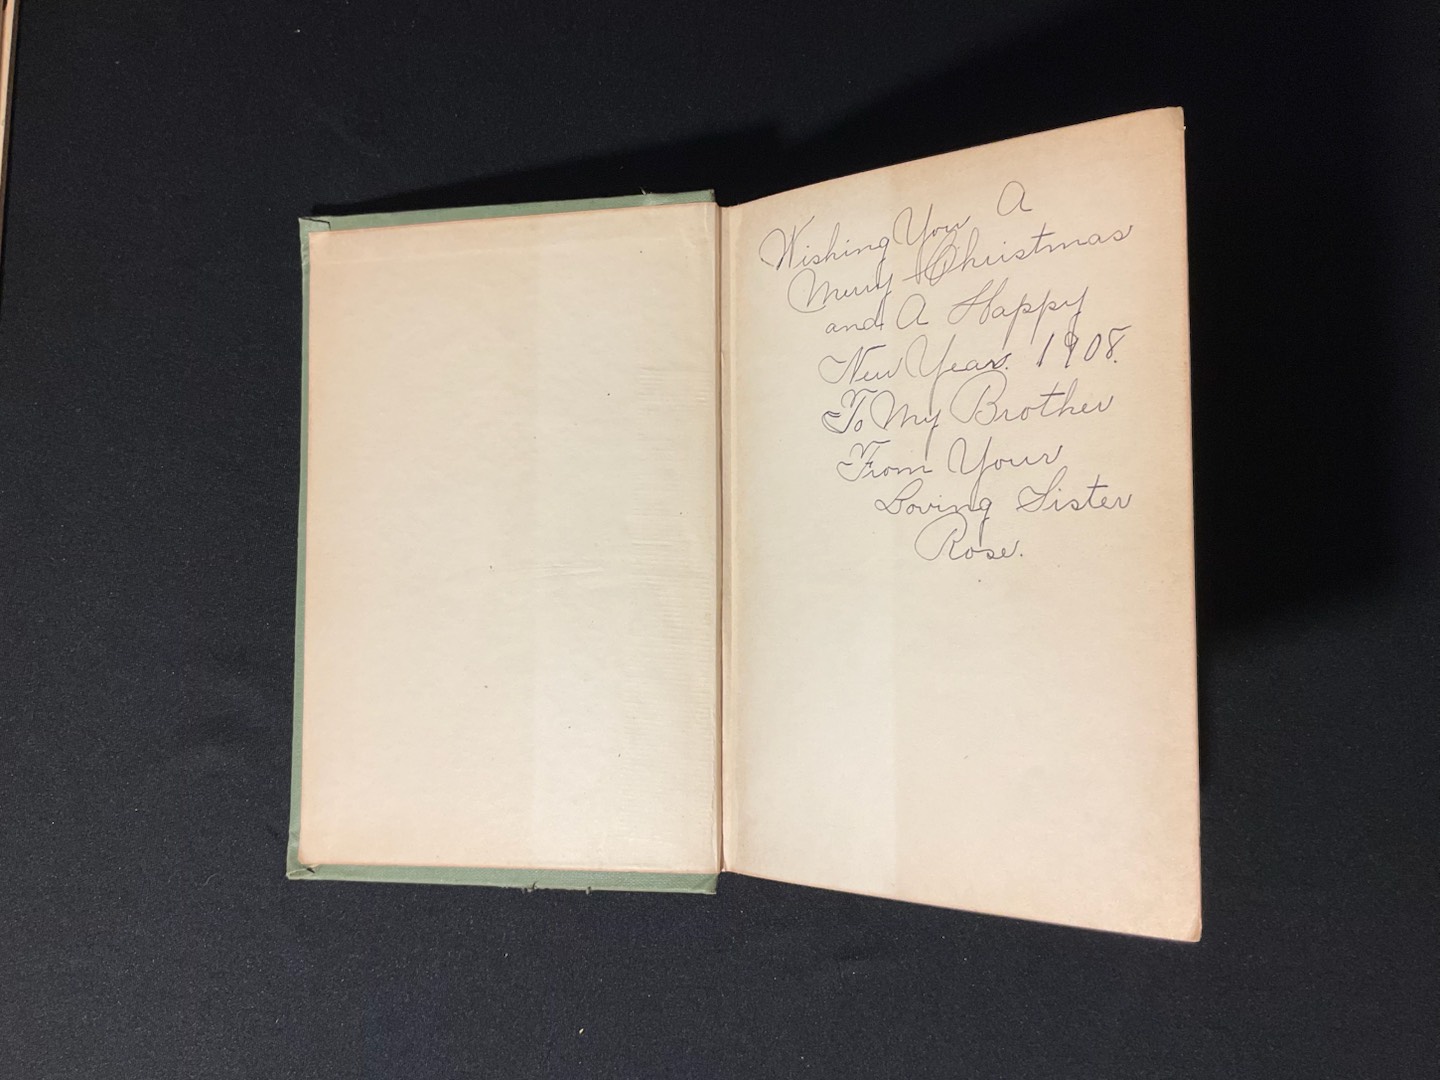 Wishing You A
Merry Christmas
and A Happy
New Year. 1908.
To My Brother
From Your
Loving Sister
Rose.